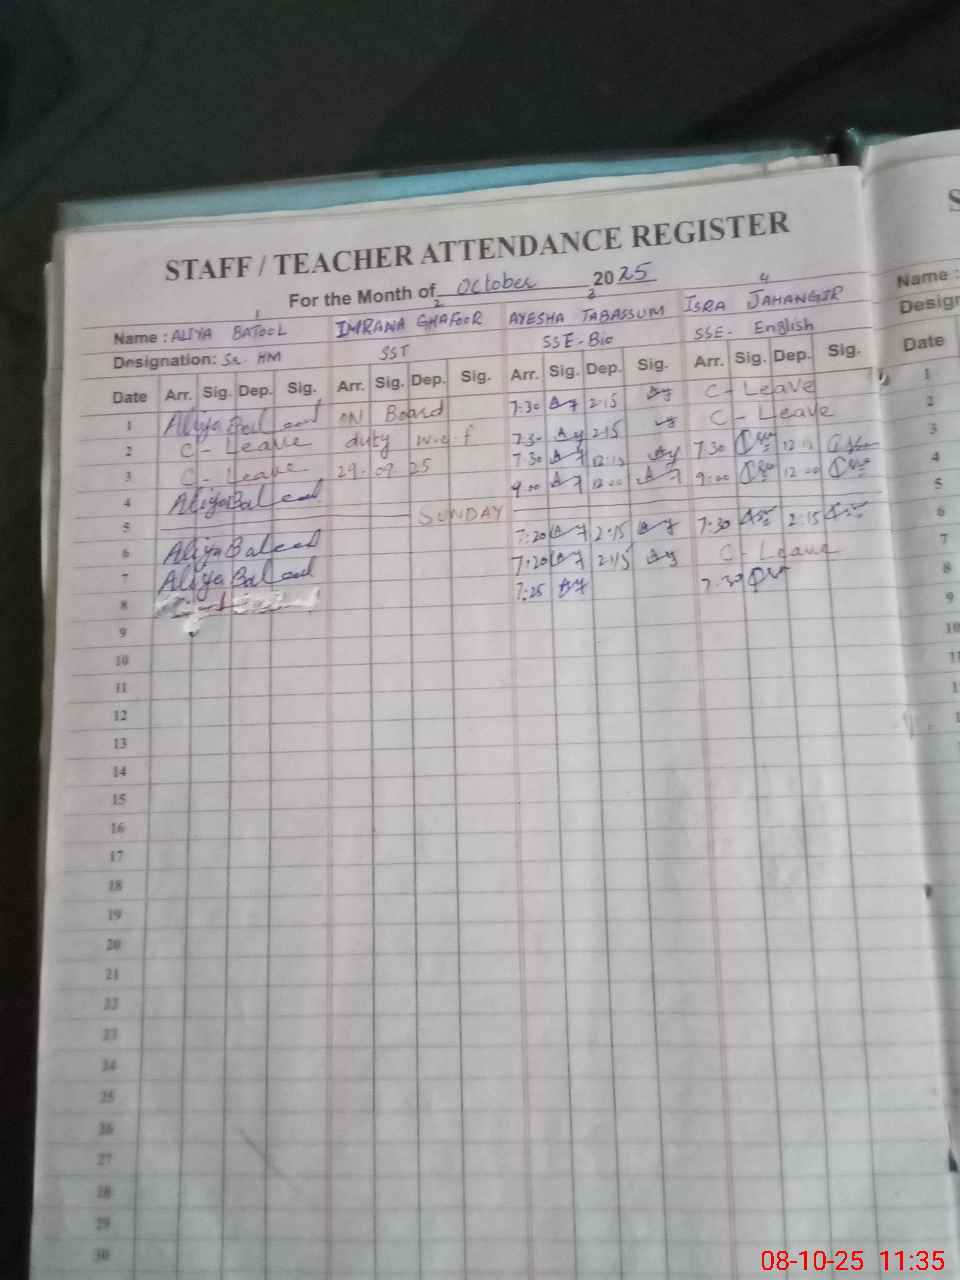 STAFF / TEACHER ATTENDANCE REGISTER
For the Month of October 2025
1 2 3 4
Name : ALIYA BATOOL IMRANA GHAFOOR AYESHA TABASSUM ISRA JAHANGIR
Designation: Sr. HM SST SSE-Bio SSE- English
Date Arr. Sig. Dep. Sig. Arr. Sig. Dep. Sig. Arr. Sig. Dep. Sig. Arr. Sig. Dep. Sig.
1 Aliya Batool ON Board 7:30 Ay 2:15 Ay C- Leave
2 C- Leave duty w.e.f 7:30 Ay 2:15 Ay C- Leave
3 C- Leave 29.09.25 7:30 Ay 12:15 Ay 7:30 12:15
4 Aliya Batool 9:00 Ay 12:00 Ay 9:00 12:00
5 SUNDAY
6 Aliya Batool 7:20 Ay 2:15 Ay 7:30 2:15
7 Aliya Batool 7:20 Ay 2:15 Ay C- Leave
8 7:25 Ay 7:30
9
10
11
12
13
14
15
16
17
18
19
20
21
22
23
24
25
26
27
28
29
30
S
Name :
Design
Date
1
2
3
4
5
6
7
8
9
10
11
08-10-25 11:35